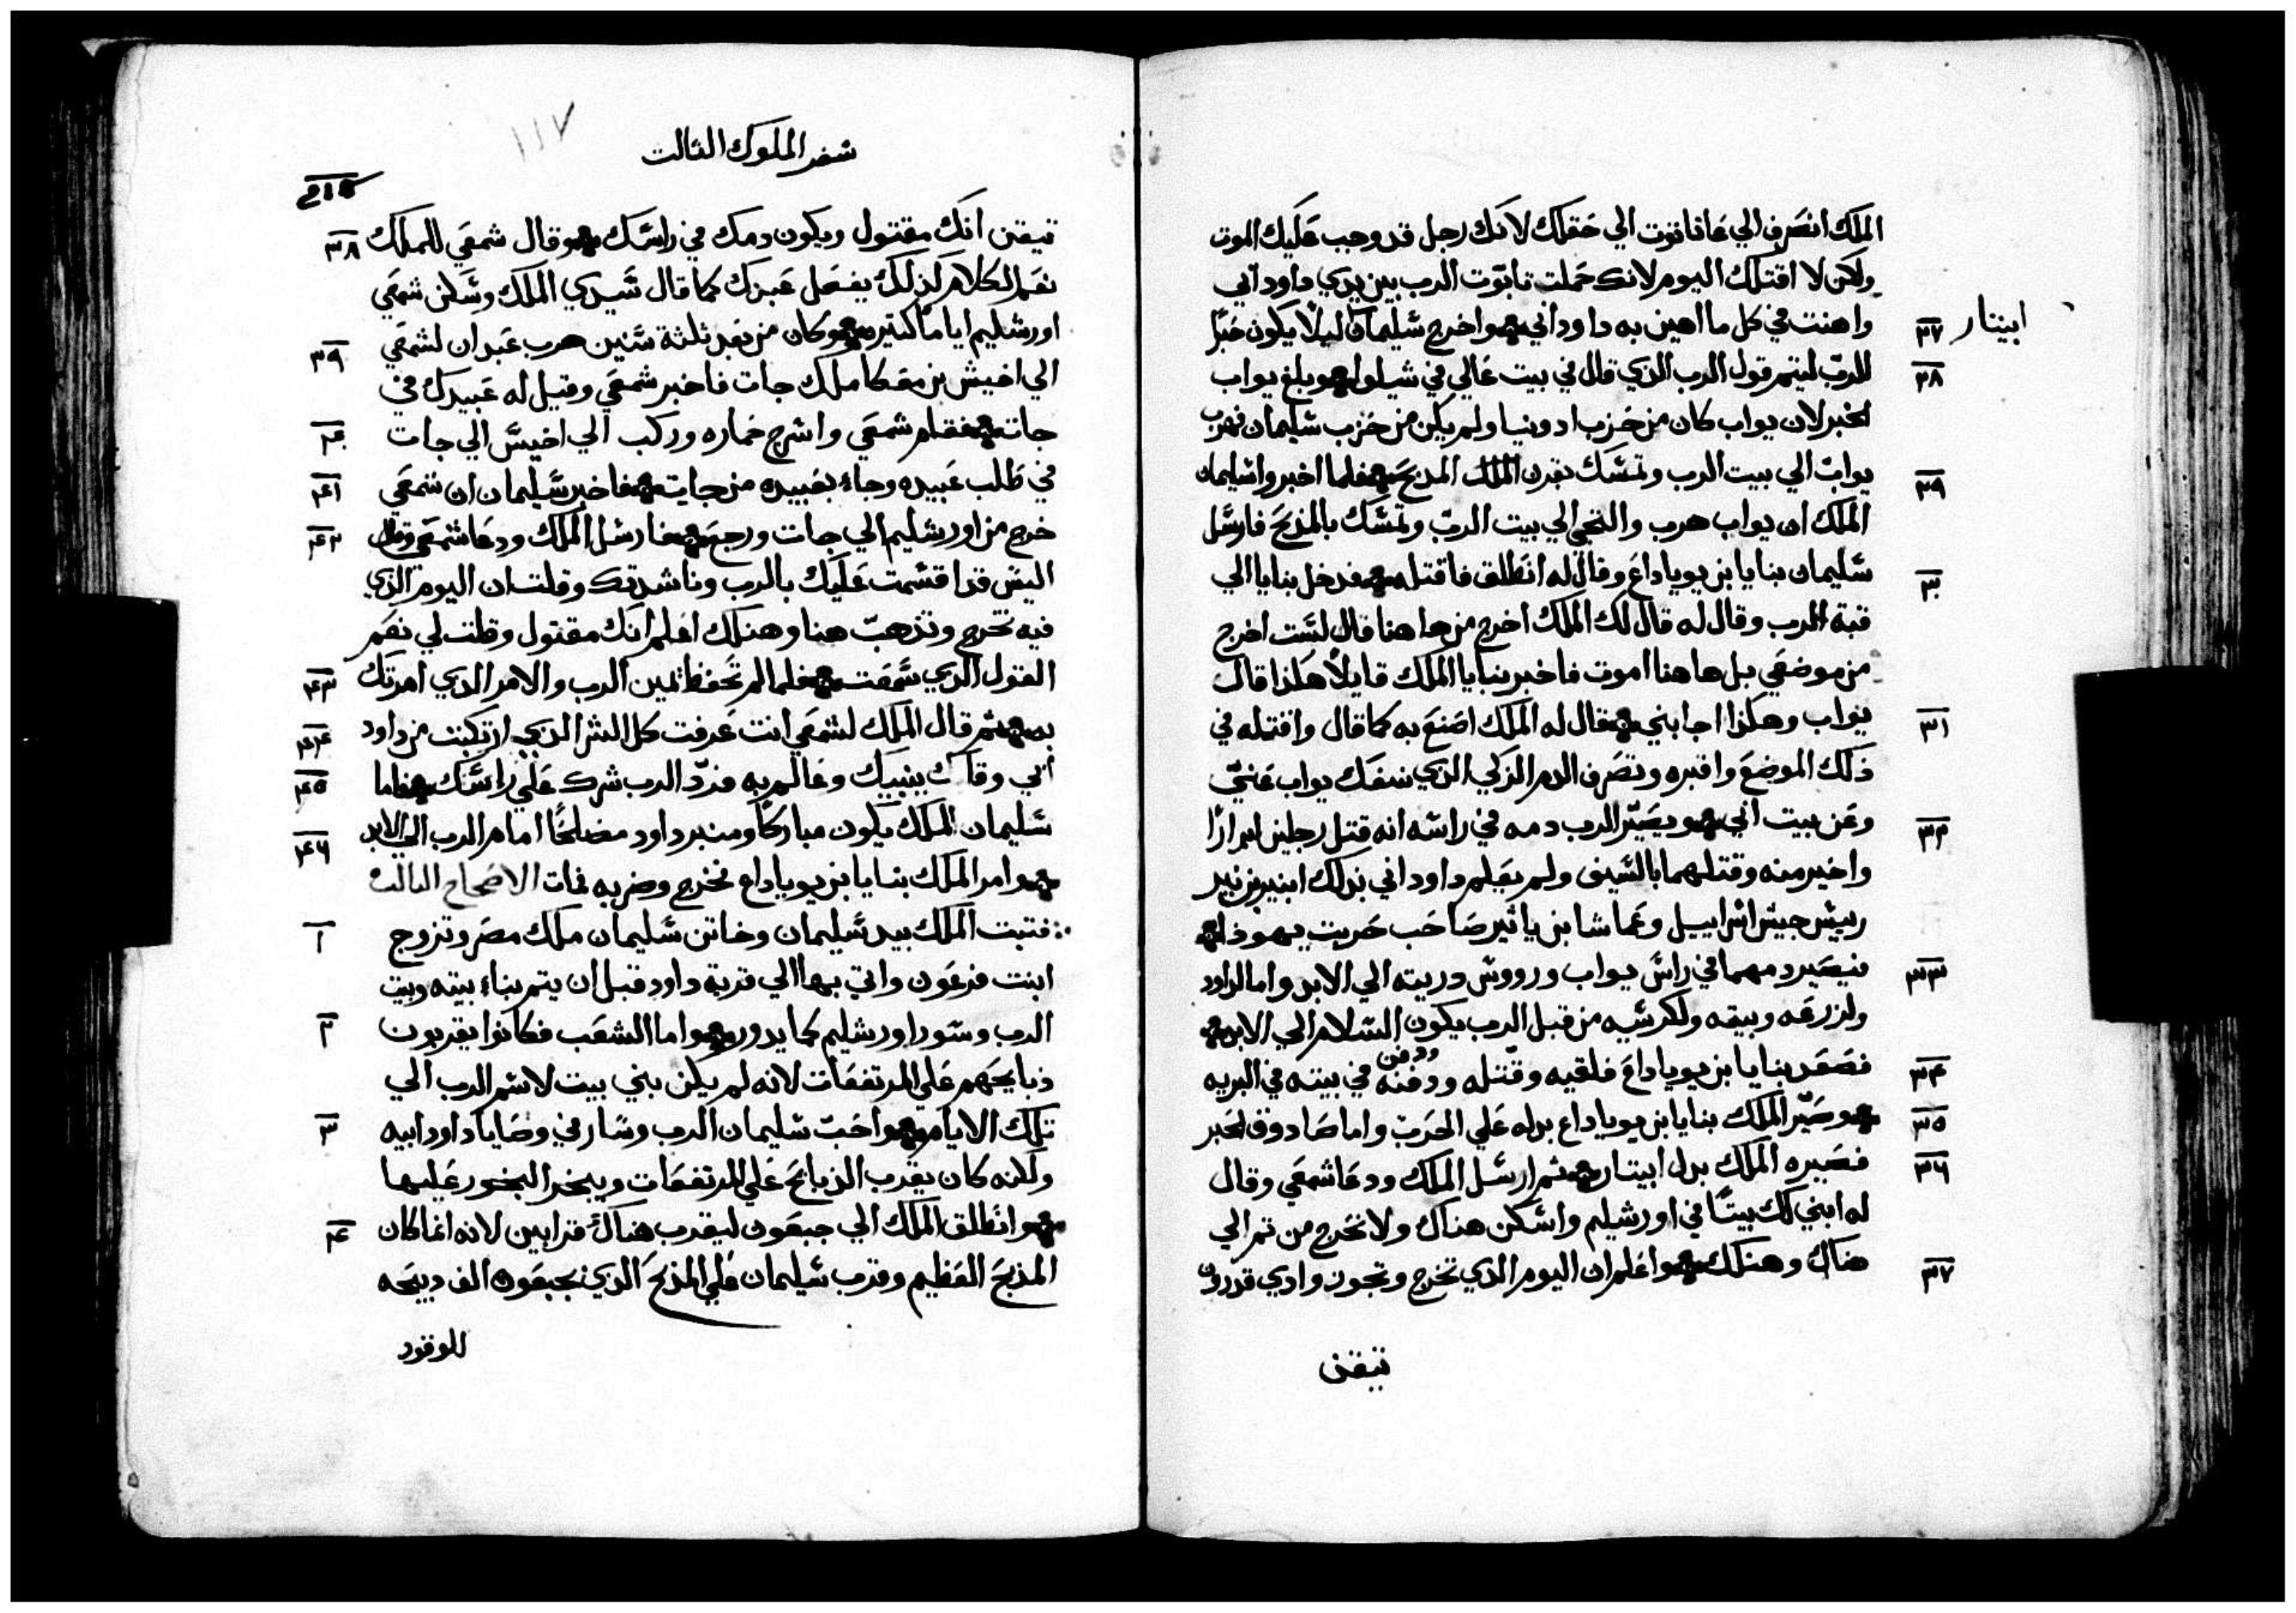 الملك انصرف الي عاناتوت الي حقلك لانك رجل قد وجب عليك الموت
ولكن لا اقتلك اليوم لانك حملت تابوت الرب بين يدي داود ابي
واهنت في كل ما اهين به داود ابي واخرج شليمان ليلا يكون حبرًا
ابيتار
٢٧
للرب ليتم قول الرب الذي قال في بيت عالي في شيلوا وبلغ يواب
٢٨
الخبر لان يواب كان من حزب ادونيا ولم يكن من حزب شليمان فهرب
يواب الي بيت الرب وتمسك بقرن المدبح فلما اخبروا شليمان
٢٩
الملك ان يواب هرب والتجي الي بيت الرب وتمسك بالمذبح فارسل
شليمان بنايا بن يوياداع وقال له انطلق فاقتله فدخل بنايا الي
٣٠
قبة الرب وقال له قال لك الملك اخرج من هاهنا قال لست اخرج
من موضعي بل هاهنا اموت فاخبر بنايا الملك قايلًا هكذا قال
يواب وهكذا اجابني فقال له الملك اصنع به كما قال واقتله في
٣١
ذلك الموضع واقبره وتصرف الدم الزكي الذي سفك يواب عني
وعن بيت ابي ويصير الرب دمه في راسه انه قتل رجلين ابرارًا
٣٢
واخير منه وقتلهما بالسيف ولم يعلم داود ابي بذلك ابنير بن نير
رييس جيش اسراييل وعماشا بن ياثير صاحب حربت يهوذا
فيصير دمهما في راس يواب ورووس دريته الي الابد واما لداود
٣٣
ولزرعه وبيته ولكرسيه من قبل الرب يكون السلام الي الابد
فصعد بنايا بن يوياداع فلقيه وقتله ودفنه في بيته في البريه
٣٤
ودفن
وصير الملك بنايا بن يوياداع بدله علي الحرب واما صادوق الحبر
٣٥
فصيره الملك بدل ابيتار ثم ارسل الملك ودعا شمعي وقال
٣٦
له ابني لك بيتًا في اورشليم واسكن هناك ولا تخرج من تم الي
هناك وهنلك واعلم ان اليوم الذي تخرج وتجوز وادي قدرون
٣٧
تيقن
١١٧
سفر الملوك الثالت
تيقن انك مقتول ويكون دمك في راسك وقال شمعي للملك
٣٨
نعم الكلام كذلك يفعل عبدك كما قال سيدي الملك وسكن شمعي
اورشليم ايامًا كتيره وكان من بعد ثلثة سنين هرب عبدان لشمعي
٣٩
الي اخيش بن معكا ملك جات فاخبر شمعي وقيل له عبيدك في
جات فقام شمعي واسرج حماره وركب الي اخيس الي جات
٤٠
في طلب عبيده وجاء بعبيده من جايت فاخبر شليمان ان شمعي
٤١
خرج من اورشليم الي جات ورجع فارسل الملك ودعا شمعي وقال
٤٢
اليس قد اقسمت عليك بالرب وناشدتك وقلت ان اليوم الذي
فيه تخرج وتذهب هنا وهنلك اعلم انك مقتول وقلت لي نعم
القول الذي سمعت فلما لم تحفظ يمين الرب والامر الذي امرتك
٤٣
به ثم قال الملك لشمعي انت عرفت كل الشر الذي ارتكبت من داود
٤٤
ابي وقال بنبيك وعالم به فرد الرب شرك علي راسك فاما
٤٥
شليمان الملك يكون مباركًا ومنبر داود مصلحًا امام الرب الي الابد
٤٦
وامر الملك بنايا بن يوياداع فخرج وضربه فمات الاصحاح التالت
فتبت الملك بيد شليمان وخاتن شليمان ملك مصر وتزوج
١
ابنت فرعون واتي بها الي قرية داود قبل ان يتم بناء بيته وبيت
الرب وسور اورشليم كما يدور واما الشعب فكانوا يقربون
٢
ذبايحهم علي المرتفعات لانه لم يكن بني بيت لاسم الرب الي
تلك الايام واحب شليمان الرب وسار في وصايا داود ابيه
٣
ولكنه كان يقرب الذبايح علي المرتفعات ويبخر البخور عليها
وانطلق الملك الي جبعون ليقرب هناك قرابين لانه انما كان
٤
المذبح العظيم وقرب شليمان علي المذبح الذي بجبعون الف دبيحه
للوقود